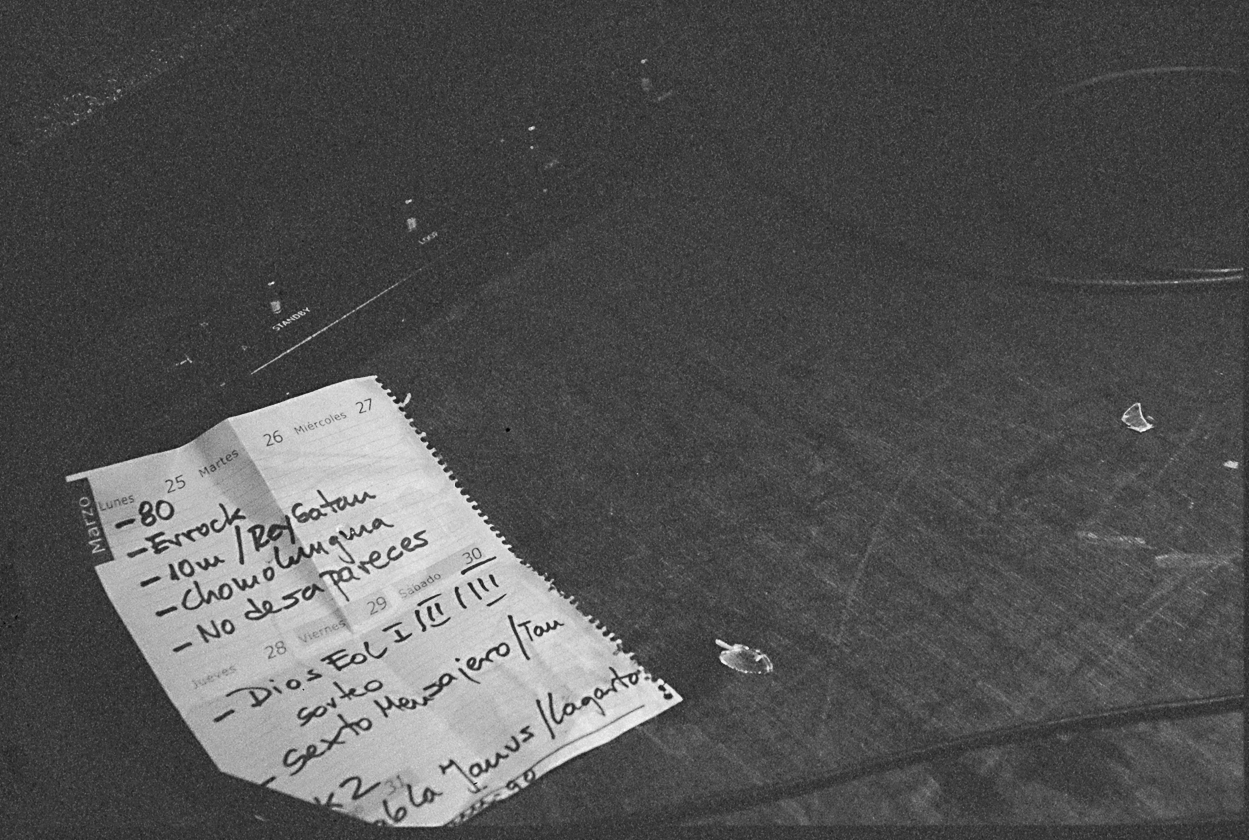 LOOP
STANDBY
Marzo
Lunes 25 Martes 26 Miércoles 27
- 80
- Errock
- 10m / ReySatan
- Chomolungma
- No desapareces
Jueves 28 Viernes 29 Sábado 30
- Dios EOL I / II / III
sorteo
- Sexto Mensajero / Tau
k2 31
Janus / Lagarto